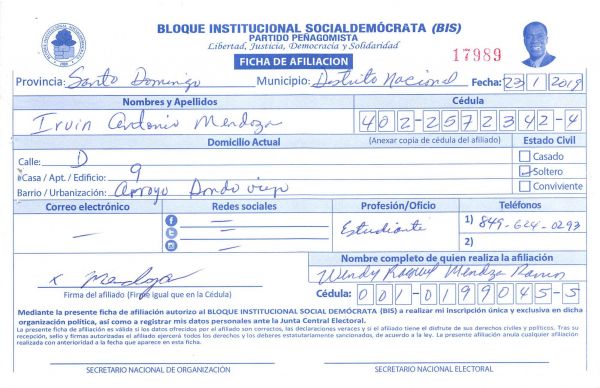 BLOQUE INSTITUCIONAL SOCIALDEMÓCRATA (BIS)
PARTIDO PEÑAGOMISTA
Libertad, Justicia, Democracia y Solidaridad
FICHA DE AFILIACION
17989
Provincia: Santo Domingo Municipio: Distrito Nacional Fecha: 23/1/2019
Nombres y Apellidos Cédula
Irvin Antonio Mendoza 402-2572342-4
Domicilio Actual (Anexar copia de cédula del afiliado) Estado Civil
Calle: D Casado
Casa / Apt. / Edificio: 9 Soltero
Barrio / Urbanización: Arroyo Hondo viejo Conviviente
Correo electrónico Redes sociales Profesión/Oficio Teléfonos
— — Estudiante 1) 849-624-0293
— 2)
—
Nombre completo de quien realiza la afiliación
x Mendoza Wendy Raquel Mendoza Ramon
Firma del afiliado (Firme igual que en la Cédula) Cédula: 001-0199045-5
Mediante la presente ficha de afiliación autorizo al BLOQUE INSTITUCIONAL SOCIAL DEMÓCRATA (BIS) a realizar mi inscripción única y exclusiva en dicha
organización política, así como a registrar mis datos personales ante la Junta Central Electoral.
La presente ficha de afiliación es válida si los datos ofrecidos por el afiliado son correctos, las declaraciones veraces y si el afiliado tiene el disfrute de sus derechos civiles y políticos. Tras su
recepción, sello y firmas autorizadas el afiliado ejercerá todos los derechos y los deberes estatutariamente sancionados, de acuerdo a la ley. La presente afiliación anula cualquier afiliación
realizada con anterioridad a la fecha que aparece en esta ficha.
SECRETARIO NACIONAL DE ORGANIZACIÓN SECRETARIO NACIONAL ELECTORAL